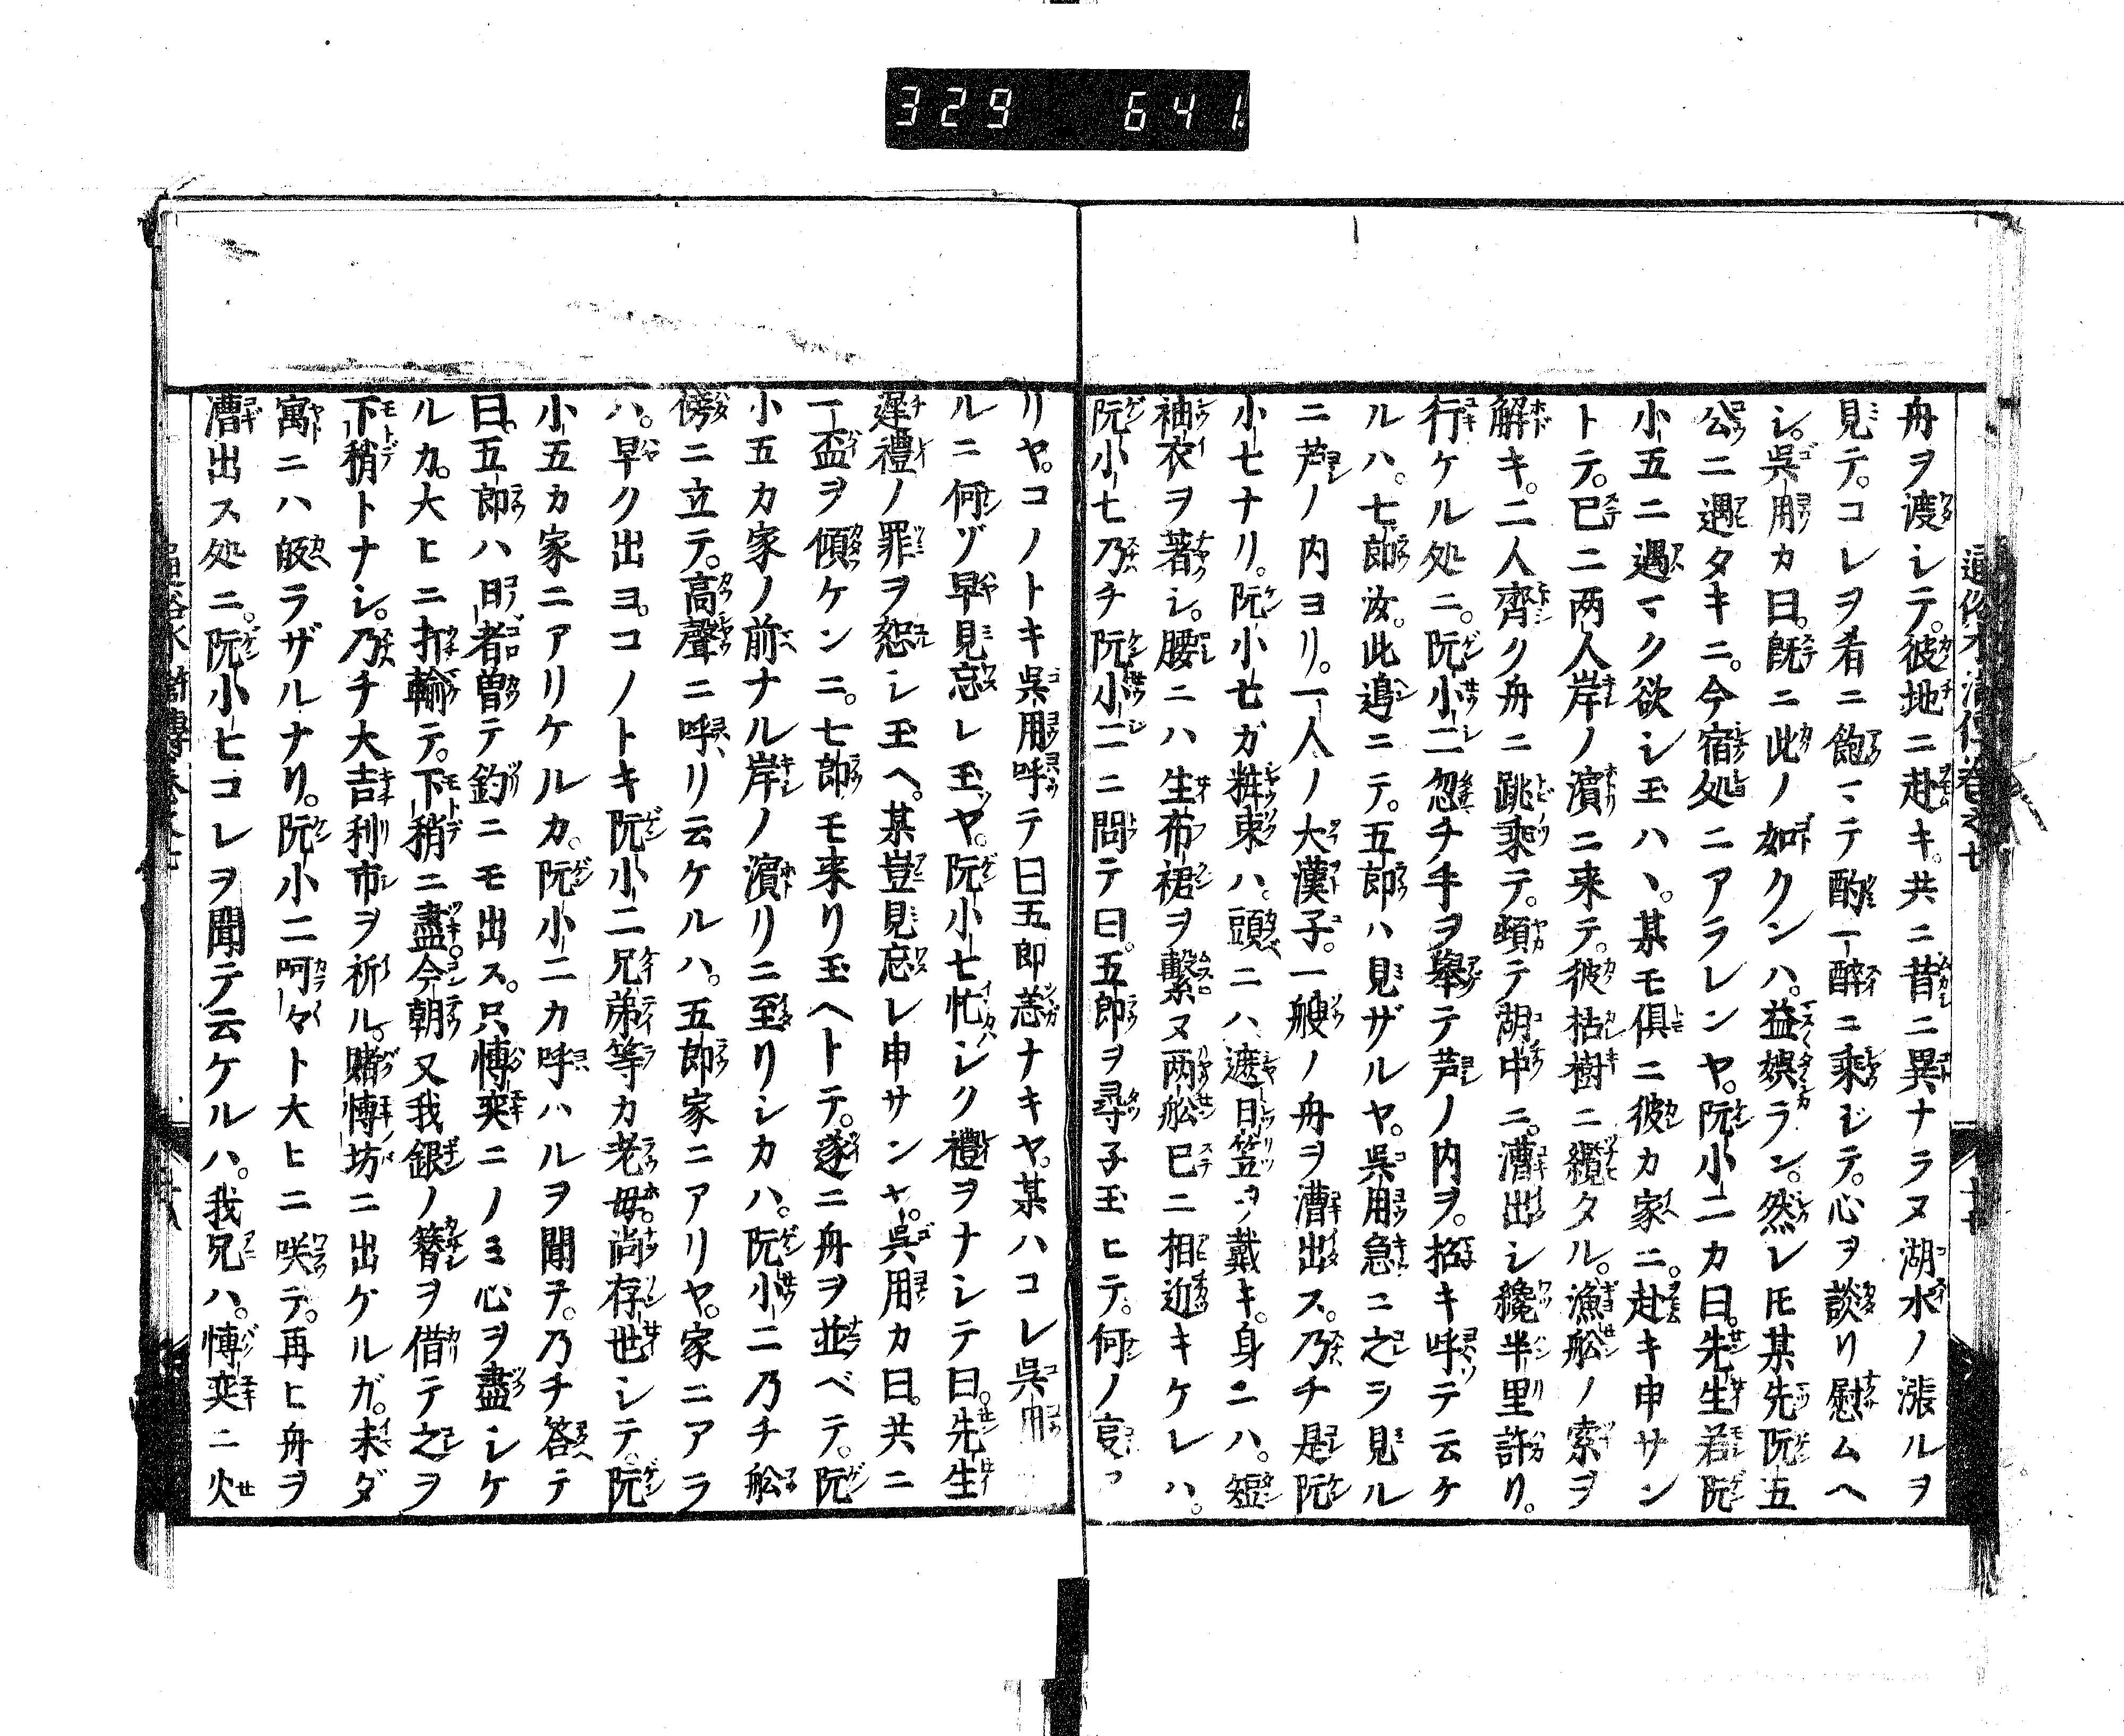 329 641
舟ヲ渡シテ。彼地ニ赴キ。共ニ昔ニ異ナラヌ湖水ノ漲ルヲ
見テ。コレヲ看ニ飽マテ酌一醉ニ乘ジテ。心ヲ談リ慰ムヘ
シ。呉用カ曰。既ニ此ノ如クンハ。益娯ラン。然レ𪜈某先阮五
公ニ遇タキニ。今宿処ニアラレンヤ。阮小二カ曰。先生若阮
小五ニ遇マク欲シ玉ハヽ。某モ俱ニ彼カ家ニ。赴キ申サン
トテ。已ニ両人岸ノ濱ニ来テ。彼枯樹ニ纜タル。漁舩ノ索ヲ
解キ。二人齊ク舟ニ跳乘テ。頓テ湖中ニ。漕出シ纔半里許リ。
行ケル処ニ。阮小二忽チ手ヲ舉テ芦ノ内ヲ。招キ呼テ云ケ
ルハ。七郎汝。此邉ニテ。五郎ハ見ザルヤ。呉用急ニ之ヲ見ル
ニ芦ノ内ヨリ。一人ノ大漢子。一艘ノ舟ヲ漕出ス。乃チ是阮
小七ナリ。阮小七ガ粧束ハ。頭ニハ遮日笠ヲ戴キ。身ニハ。短
袖衣ヲ著シ。腰ニハ生布裙ヲ繫ヌ両舩已ニ相近キケレハ。
阮小七乃チ阮小二ニ問テ曰。五郎ヲ尋子玉ヒテ。何ノ
リヤ。コノトキ呉用呼テ曰五郎恙ナキヤ。某ハコレ呉用
ルニ何ゾ早見忘レ玉ヤ。阮小七忙シク禮ヲナシテ曰。先生
遲禮ノ罪ヲ恕シ玉ヘ。某豈見忘レ申サンヤ。呉用カ曰。共ニ
一盃ヲ傾ケンニ。七郎モ来リ玉ヘトテ。遂ニ舟ヲ並ベテ。阮
小五カ家ノ前ナル岸ノ濱リニ至リシカハ。阮小二乃チ舩
傍ニ立テ。高聲ニ呼リ云ケルハ。五郎家ニアリヤ。家ニアラ
ハ。早ク出ヨ。コノトキ阮小二兄弟等カ老母。尚存世シテ。阮
小五カ家ニアリケルカ。阮小二カ呼ハルヲ聞テ。乃チ答テ
曰。五郎ハ日者曽テ釣ニモ出ス。只愽奕ニノミ心ヲ盡シケ
ルカ。大ヒニ打輸テ。下稍ニ盡今朝又我銀ノ簪ヲ借テ之ヲ
下稍トナシ。乃チ大吉利市ヲ祈ル。賭愽坊ニ出ケルガ。未ダ
寓ニハ皈ラザルナリ。阮小二呵々ト大ヒニ咲テ。再ヒ舟ヲ
漕出ス処ニ。阮小七コレヲ聞テ云ケルハ。我兄ハ。愽奕ニ火